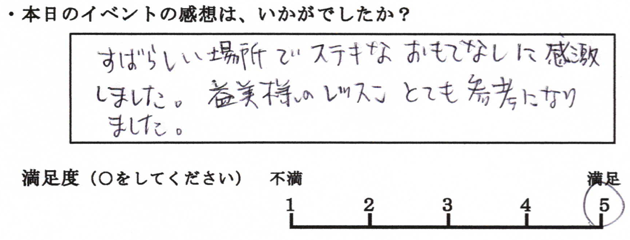 ・本日のイベントの感想は、いかがでしたか？
すばらしい場所でステキなおもてなしに感激
しました。益美様のレッスンとても参考になり
ました。
満足度（○をしてください） 不満 満足
1 2 3 4 5